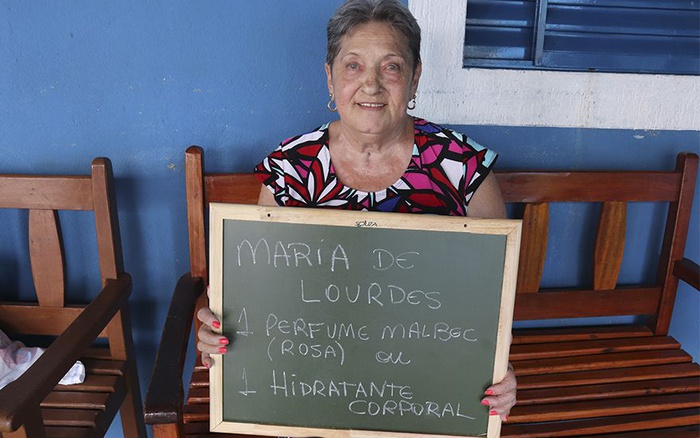 MARIA DE
LOURDES
1 PERFUME MALBEC
(ROSA) ou
1 HIDRATANTE
CORPORAL